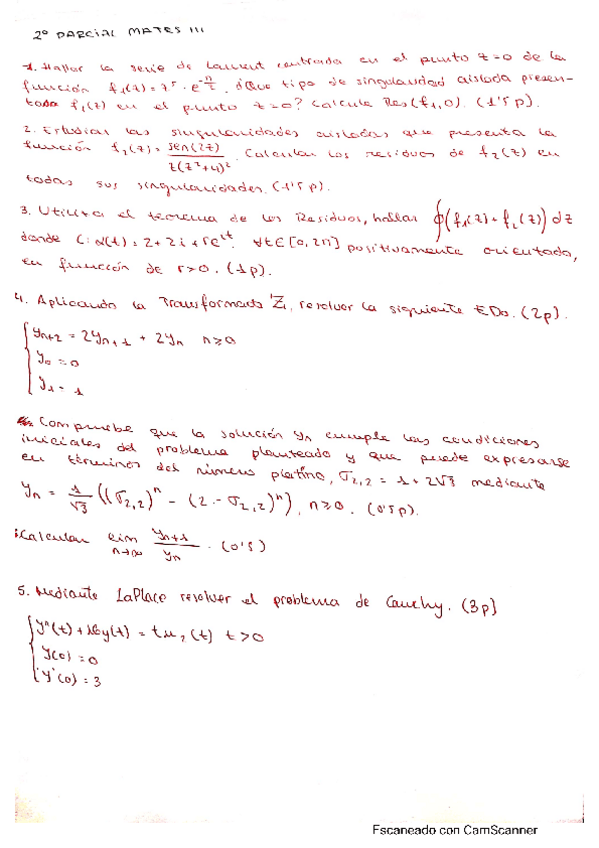 2º PARCIAL MATES III
1. Hallar la serie de Laurent centrada en el punto z=0 de la
función f₁(z)=z⁵·e^(-π/z). ¿Que tipo de singularidad aislada presen-
tada f₁(z) en el punto z=0? Calcula Res(f₁,0). (1'5 p).
2. Estudiar las singularidades aisladas que presenta la
función f₂(z)= sen(2z)/z(z²+4)². Calcular los residuos de f₂(z) en
todas sus singularidades. (1'5 p).
3. Utiliza el teorema de los Residuos, hallar ∮(f₁(z)+f₂(z))dz
donde C: α(t)=2+2i+re^(it) ∀t∈[0,2π] positivamente orientada,
en función de r>0. (1p).
4. Aplicando la Transformada Z, resolver la siguiente EDo. (2p).
yₙ₊₂ = 2yₙ₊₁ + 2yₙ n≥0
y₀ = 0
y₁ = 1
Compruebe que la solución yₙ cumple las condiciones
iniciales del problema planteado y que puede expresarse
en términos del número platino, σ₂,₂ = 1+2√3 mediante
yₙ = 1/√3 ((σ₂,₂)ⁿ - (2-σ₂,₂)ⁿ), n≥0. (0'5p).
Calcular lim n→∞ yₙ₊₁/yₙ. (0'5)
5. Mediante LaPlace resolver el problema de Cauchy. (3p)
y''(t)+16y(t) = tμ₂(t) t>0
y(0)=0
y'(0)=3
Escaneado con CamScanner